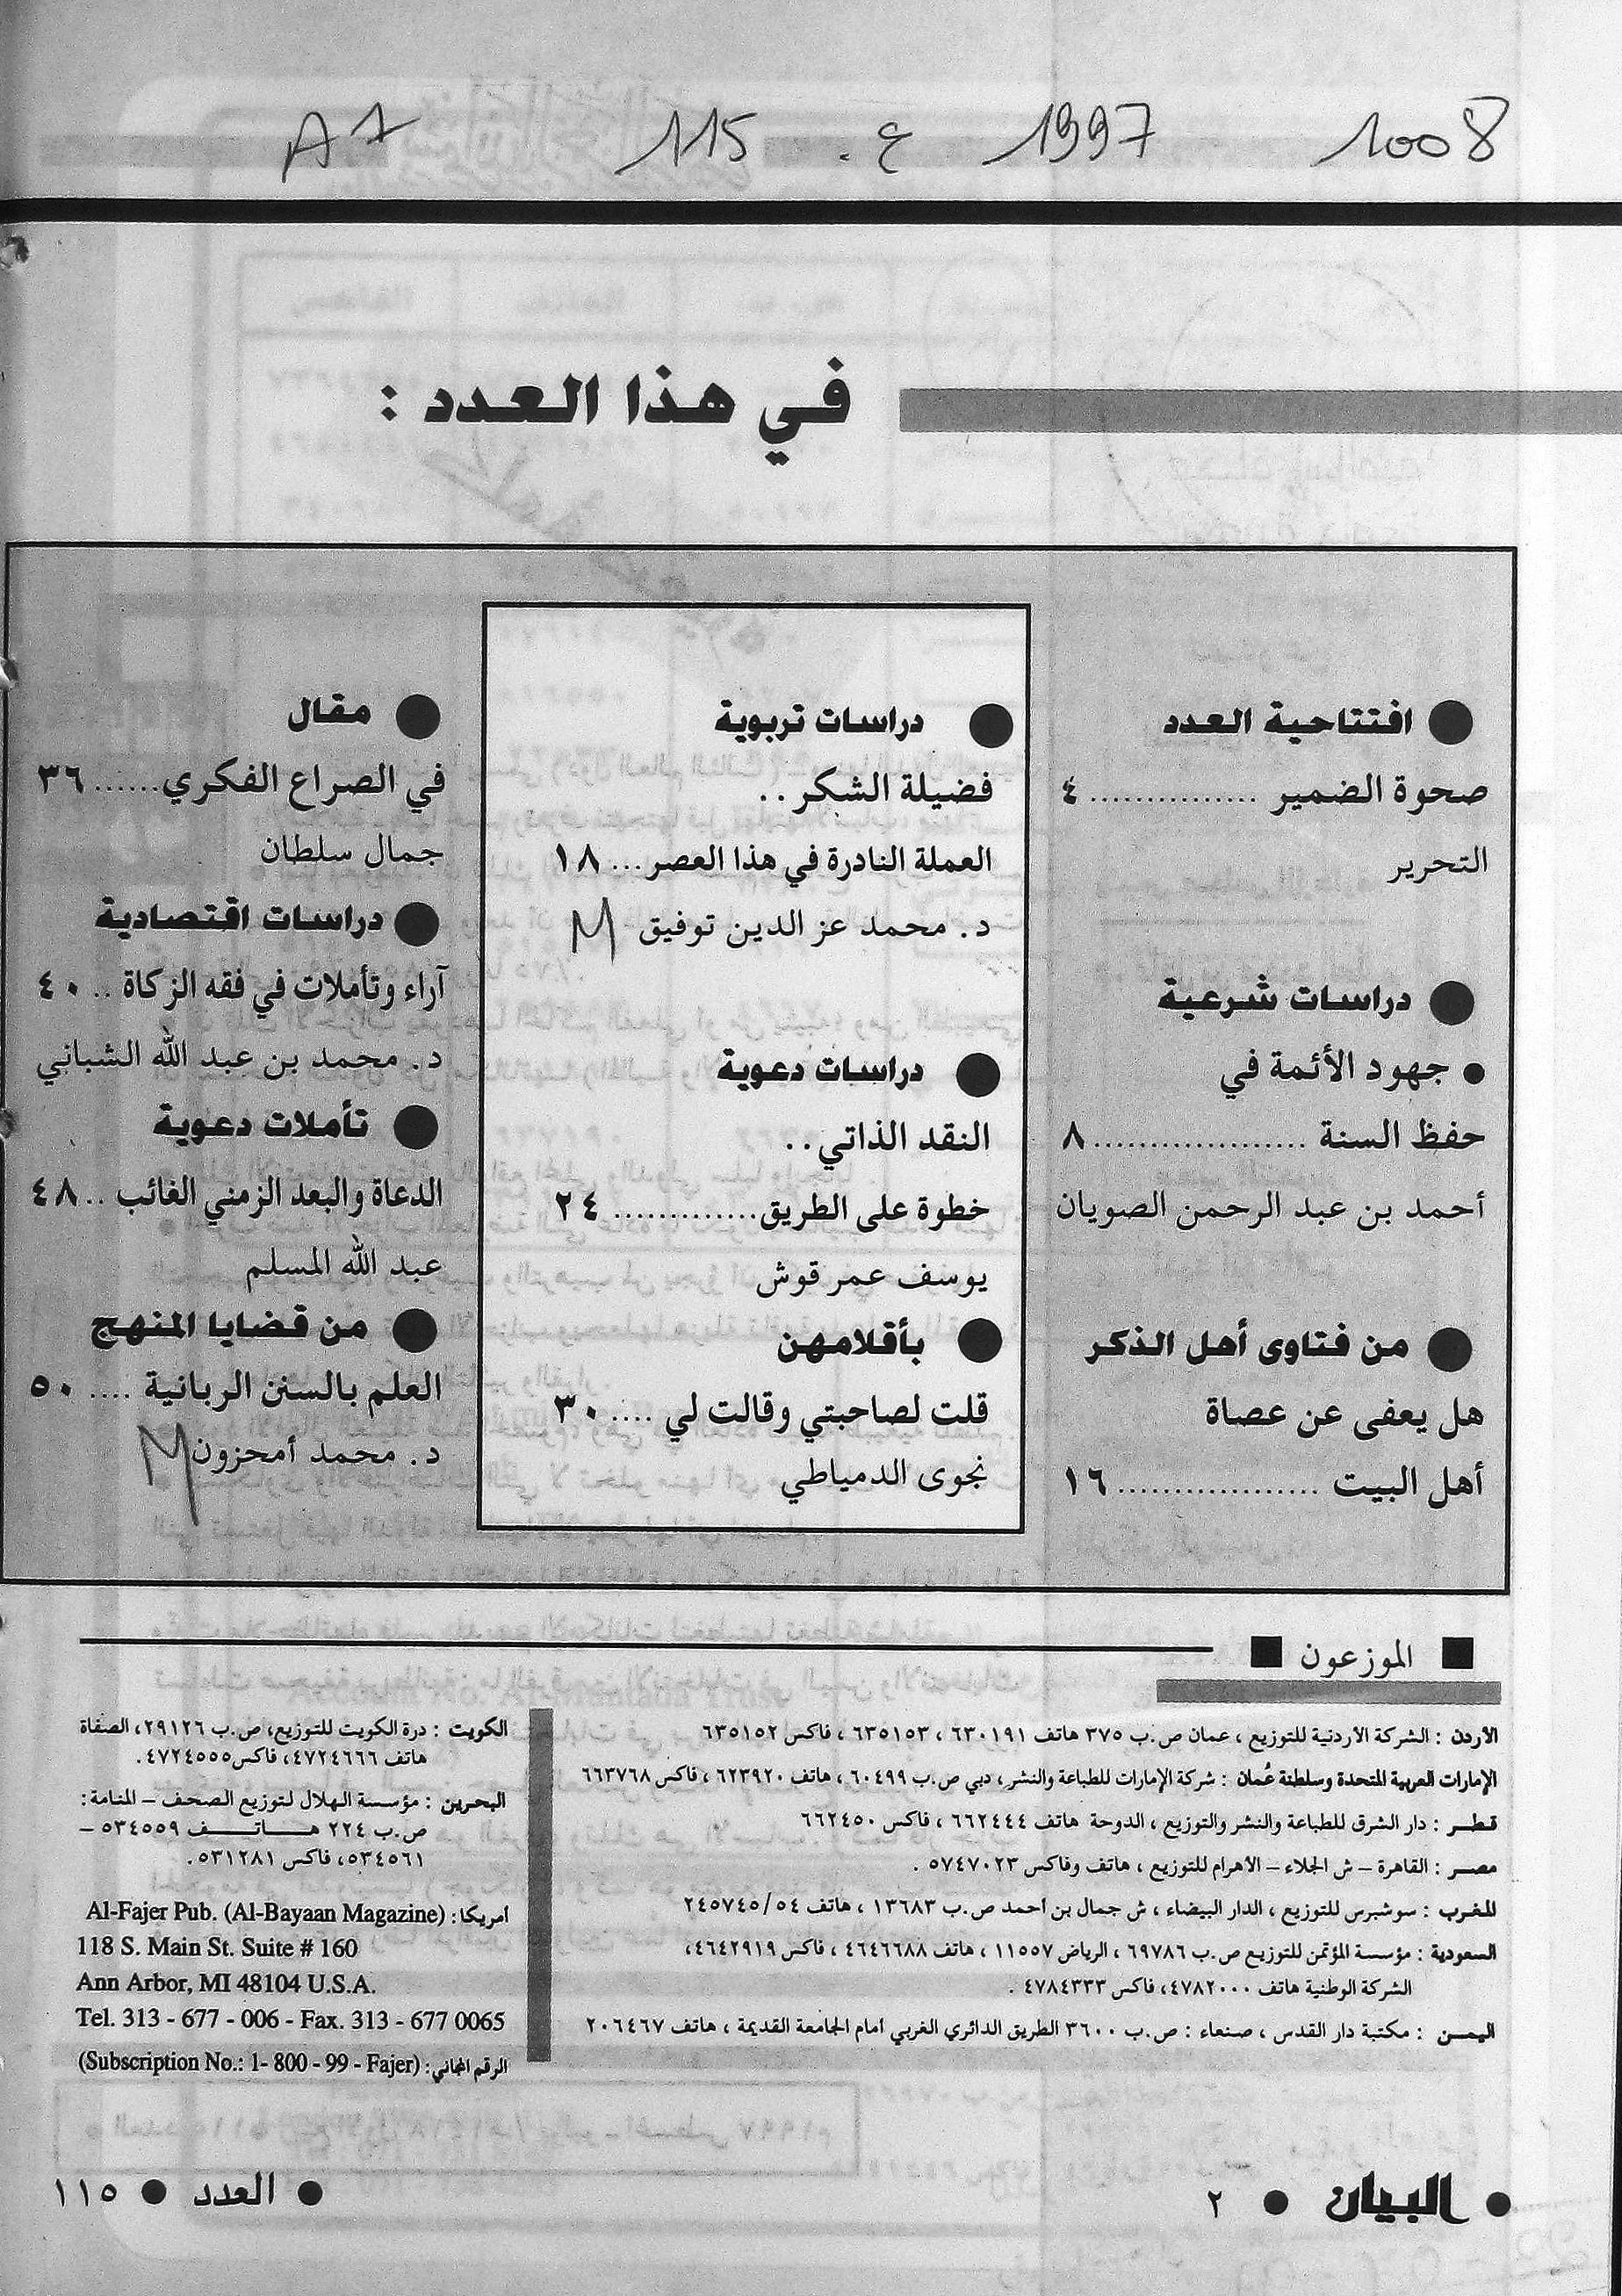 1008 1997 ع. 115 A7
في هذا العدد :
افتتاحية العدد
صحوة الضمير ............... ٤
التحرير
دراسات شرعية
جهود الأئمة في
حفظ السنة ................... ٨
أحمد بن عبد الرحمن الصويان
من فتاوى أهل الذكر
هل يعفى عن عصاة
أهل البيت .................. ١٦
دراسات تربوية
فضيلة الشكر ..
العملة النادرة في هذا العصر ... ١٨
د. محمد عز الدين توفيق M
دراسات دعوية
النقد الذاتي ..
خطوة على الطريق ............. ٢٤
يوسف عمر قوش
بأقلامهن
قلت لصاحبتي وقالت لي .... ٣٠
نجوى الدمياطي
مقال
في الصراع الفكري ...... ٣٦
جمال سلطان
دراسات اقتصادية
آراء وتأملات في فقه الزكاة .. ٤٠
د. محمد بن عبد الله الشباني
تأملات دعوية
الدعاة والبعد الزمني الغائب .. ٤٨
عبد الله المسلم
من قضايا المنهج
العلم بالسنن الربانية .... ٥٠
د. محمد أمحزون M
الموزعون
الأردن : الشركة الأردنية للتوزيع ، عمان ص.ب ٣٧٥ هاتف ٦٣٠١٩١ ، ٦٣٥١٥٣ ، فاكس ٦٣٥١٥٢
الإمارات العربية المتحدة وسلطنة عُمان : شركة الإمارات للطباعة والنشر، دبي ص.ب ٦٠٤٩٩ ، هاتف ٦٢٣٩٢٠ ، فاكس ٦٦٣٧٦٨
قطـر : دار الشرق للطباعة والنشر والتوزيع ، الدوحة هاتف ٦٦٢٤٤٤ ، فاكس ٦٦٢٤٥٠
مصـر : القاهرة – ش الجلاء – الأهرام للتوزيع ، هاتف وفاكس ٥٧٤٧٠٢٣ .
المغرب : سوشبرس للتوزيع ، الدار البيضاء ، ش جمال بن أحمد ص.ب ١٣٦٨٣ ، هاتف ٢٤٥٧٤٥/٥٤
السعودية : مؤسسة المؤتمن للتوزيع ص.ب ٦٩٧٨٦ ، الرياض ١١٥٥٧ ، هاتف ٤٦٤٦٦٨٨ ، فاكس ٤٦٤٢٩١٩،
الشركة الوطنية هاتف ٤٧٨٢٠٠٠، فاكس ٤٧٨٤٣٣٣ .
اليمـن : مكتبة دار القدس ، صنعاء : ص.ب ٣٦٠٠ الطريق الدائري الغربي أمام الجامعة القديمة ، هاتف ٢٠٦٤٦٧
الكويت : درة الكويت للتوزيع، ص.ب ٢٩١٢٦، الصفاة
هاتف ٤٧٢٤٦٦٦، فاكس٤٧٢٤٥٥٥ .
البحرين : مؤسسة الهلال لتوزيع الصحف – المنامة :
ص.ب ٢٢٤ هـاتـف ٥٣٤٥٥٩ –
٥٣٤٥٦١، فاكس ٥٣١٢٨١ .
أمريكا : Al-Fajer Pub. (Al-Bayaan Magazine)
118 S. Main St. Suite # 160
Ann Arbor, MI 48104 U.S.A.
Tel. 313 - 677 - 006 - Fax. 313 - 677 0065
الرقم المجاني : (Subscription No.: 1- 800 - 99 - Fajer)
البيان ● ٢
العدد ● ١١٥